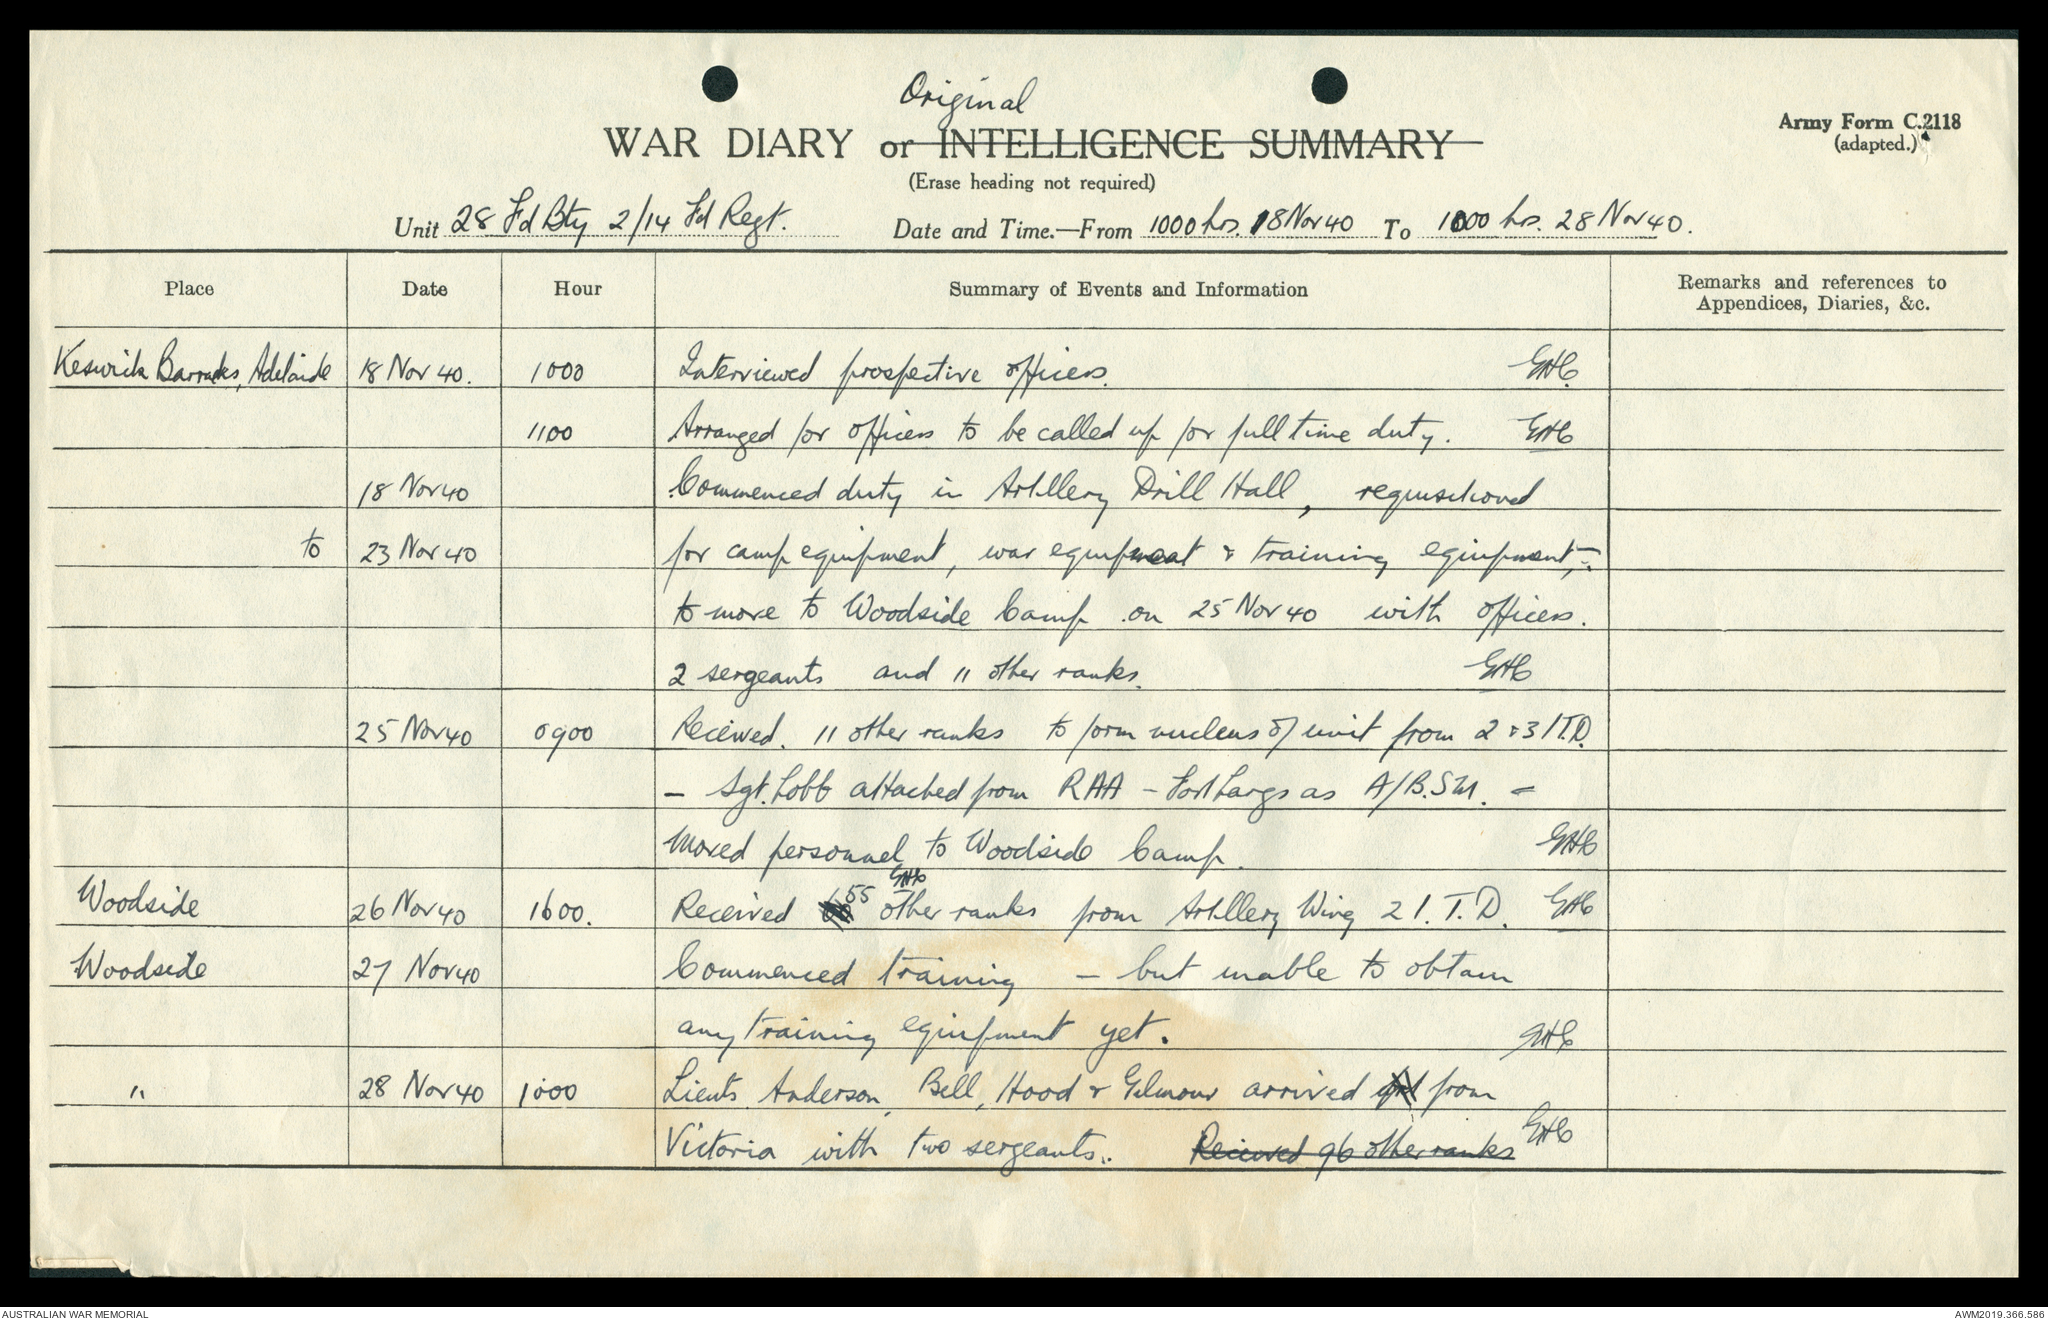 Original
WAR DIARY or INTELLIGENCE SUMMARY
Army Form C.2118
(adapted.)
(Erase heading not required)
Unit 28 Fd Bty 2/14 Fd Regt. Date and Time.—From 1000 hrs. 18 Nov 40 To 1000 hrs. 28 Nov 40.
Place Date Hour Summary of Events and Information Remarks and references to
Appendices, Diaries, &c.
Keswick Barracks, Adelaide 18 Nov 40. 1000 Interviewed prospective officers. GHC
1100 Arranged for officers to be called up for full time duty. GHC
18 Nov 40 Commenced duty in Artillery Drill Hall, requisitioned
to 23 Nov 40 for camp equipment, war equipment & training equipment,-
to move to Woodside Camp on 25 Nov 40 with officers.
2 sergeants and 11 other ranks. GHC
25 Nov 40 0900 Received. 11 other ranks to form nucleus of unit from 2 & 3 I.T.D.
- Sgt. Lobb attached from RAA - Fort Largs as A/B.S.M. -
Moved personnel to Woodside Camp. GHC
GHC
Woodside 26 Nov 40 1600. Received 55 other ranks from Artillery Wing 2 I.T.D. GHC
Woodside 27 Nov 40 Commenced training - but unable to obtain
any training equipment yet. GHC
" 28 Nov 40 1000 Lieuts. Anderson, Bell, Hood & Gilmour arrived from
Victoria with two sergeants. Received 96 other ranks GHC
AUSTRALIAN WAR MEMORIAL
AWM2019.366.586